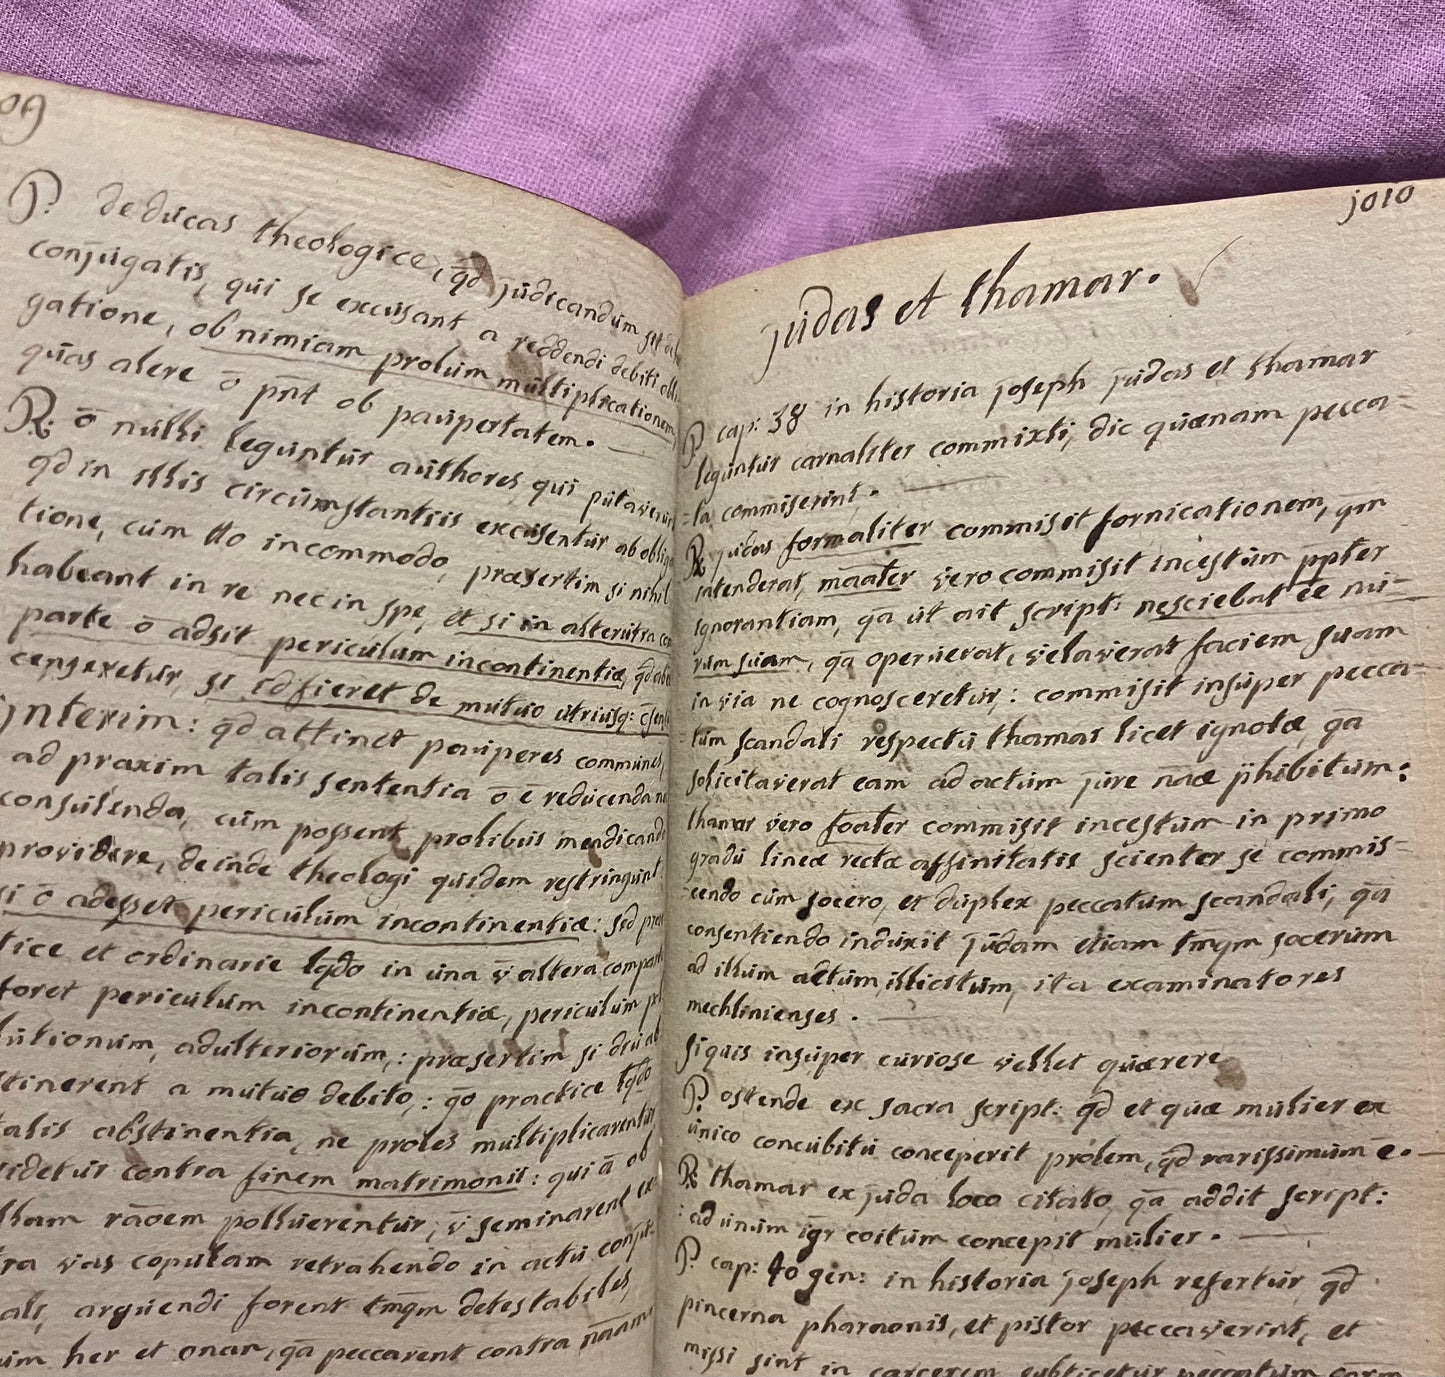 09
P. deducas theologice, qd judicandum sit de
conjugatis, qui se excusant a reddendi debiti obli
gatione, ob nimiam prolium multiplicationem,
quas alere õ pñt ob paupertatem.
R. õ nulli leguntur authores, qui putaverunt
qd in illis circumstantiis excusentur ab obliga
tione, cum tto incommodo, præsertim si nihil
habeant in re nec in spe, et si in alterutra com
parte õ adsit periculum incontinentiæ, qd abe
censeretur, si id fieret de mutuo utriusq: c̃sensu
jnterim: qd attinet pauperes communes,
ad praxim talis sententia õ ẽ reducenda nec
consulenda, cum possent prolibus mendicando
providere, deinde theologi quidem restringunt
si õ adesset periculum incontinentiæ: sed prac
tice et ordinarie lqdo in una v̄ altera comparte
foret periculum incontinentiæ, periculum pol
lutionum, adulteriorum,: præsertim si diu ab
stinerent a mutuo debito,: qo practice lqdo
talis abstinentia, ne proles multiplicarentur
videtur contra finem matrimonii: qui ã ob
illam rãoem polluerentur, v̄ seminarent ex
tra vas copulam retrahendo in actu conju
gali, arguendi forent tmqm detestabiles,
uim her et onan, qã peccarent contra nããm
jo10
judas et thamar.
P. cap: 38 in historia joseph judas et thamar
leguntur carnaliter commixti, dic quænam pecca-
-ta commiserint.
R. judas formaliter commisit fornicationem, qm
intenderat, mããter vero commisit incestum ppter
ignorantiam, qã ut ait script: nesciebat ẽe nu-
rum suam, qã operuerat, velaverat faciem suam
in via ne cognosceretur,: commisit insuper pecca-
-tum scandali respectu thamar licet ignotæ, qã
solicitaverat eam ad actum jure nãæ p̃hibitum:
thamar vero foater commisit incestum in primo
gradu lineæ rectæ affinitatis scienter se commis-
-cendo cum socero, et duplex peccatum scandali, qã
consentiendo induxit judam etiam tmqm socerum
ad illum actum illicitum, ita examinatores
mechlinienses.
Siquis insuper curiose vellet quærere
P. ostende ex sacra script: qd et quæ mulier ex
unico concubitu conceperit prolem, qd rarissimum ẽ.
R. thamar ex juda loco citato, qã addit script:
: ad unum igr coitum concepit mulier.
P. cap: 40 gen: in historia joseph refertur, qd
pincerna pharaonis, et pistor peccaverint, et
missi sint in carcerem subticetur peccatum eorm